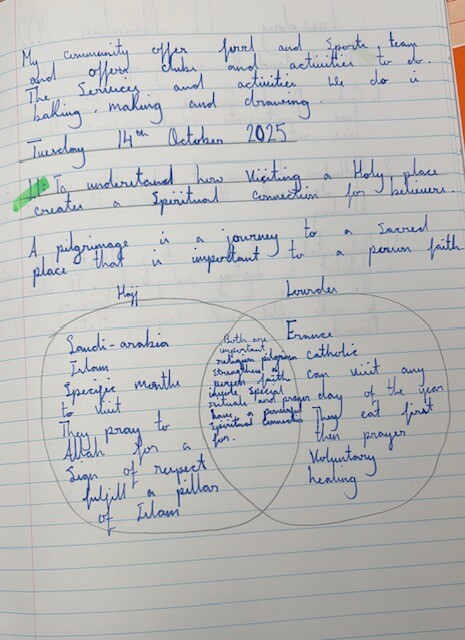 My community offer food and Sports team
and offers clubs and activities to do.
The Services and activities we do is
baking, making and drawing.
Tuesday 14th October 2025
LI: To understand how Visiting a Holy place
creates a Spiritual Connection for believers.
A pilgrimage is a journey to a Sacred
place that is important to a person faith.
Hajj
Lourdes
Saudi-arabia
Islam
Specific months
to visit
They pray to
Allah for a
Sign of respect
fulfill a pillar
of Islam
Both are
important
religious pilgrim
strengthen a
person faith
Special
rituals and prayer
have a powerful
Spiritual connection
for.
France
catholic
can visit any
day of the year
They eat first
then prayer
Voluntary
healing